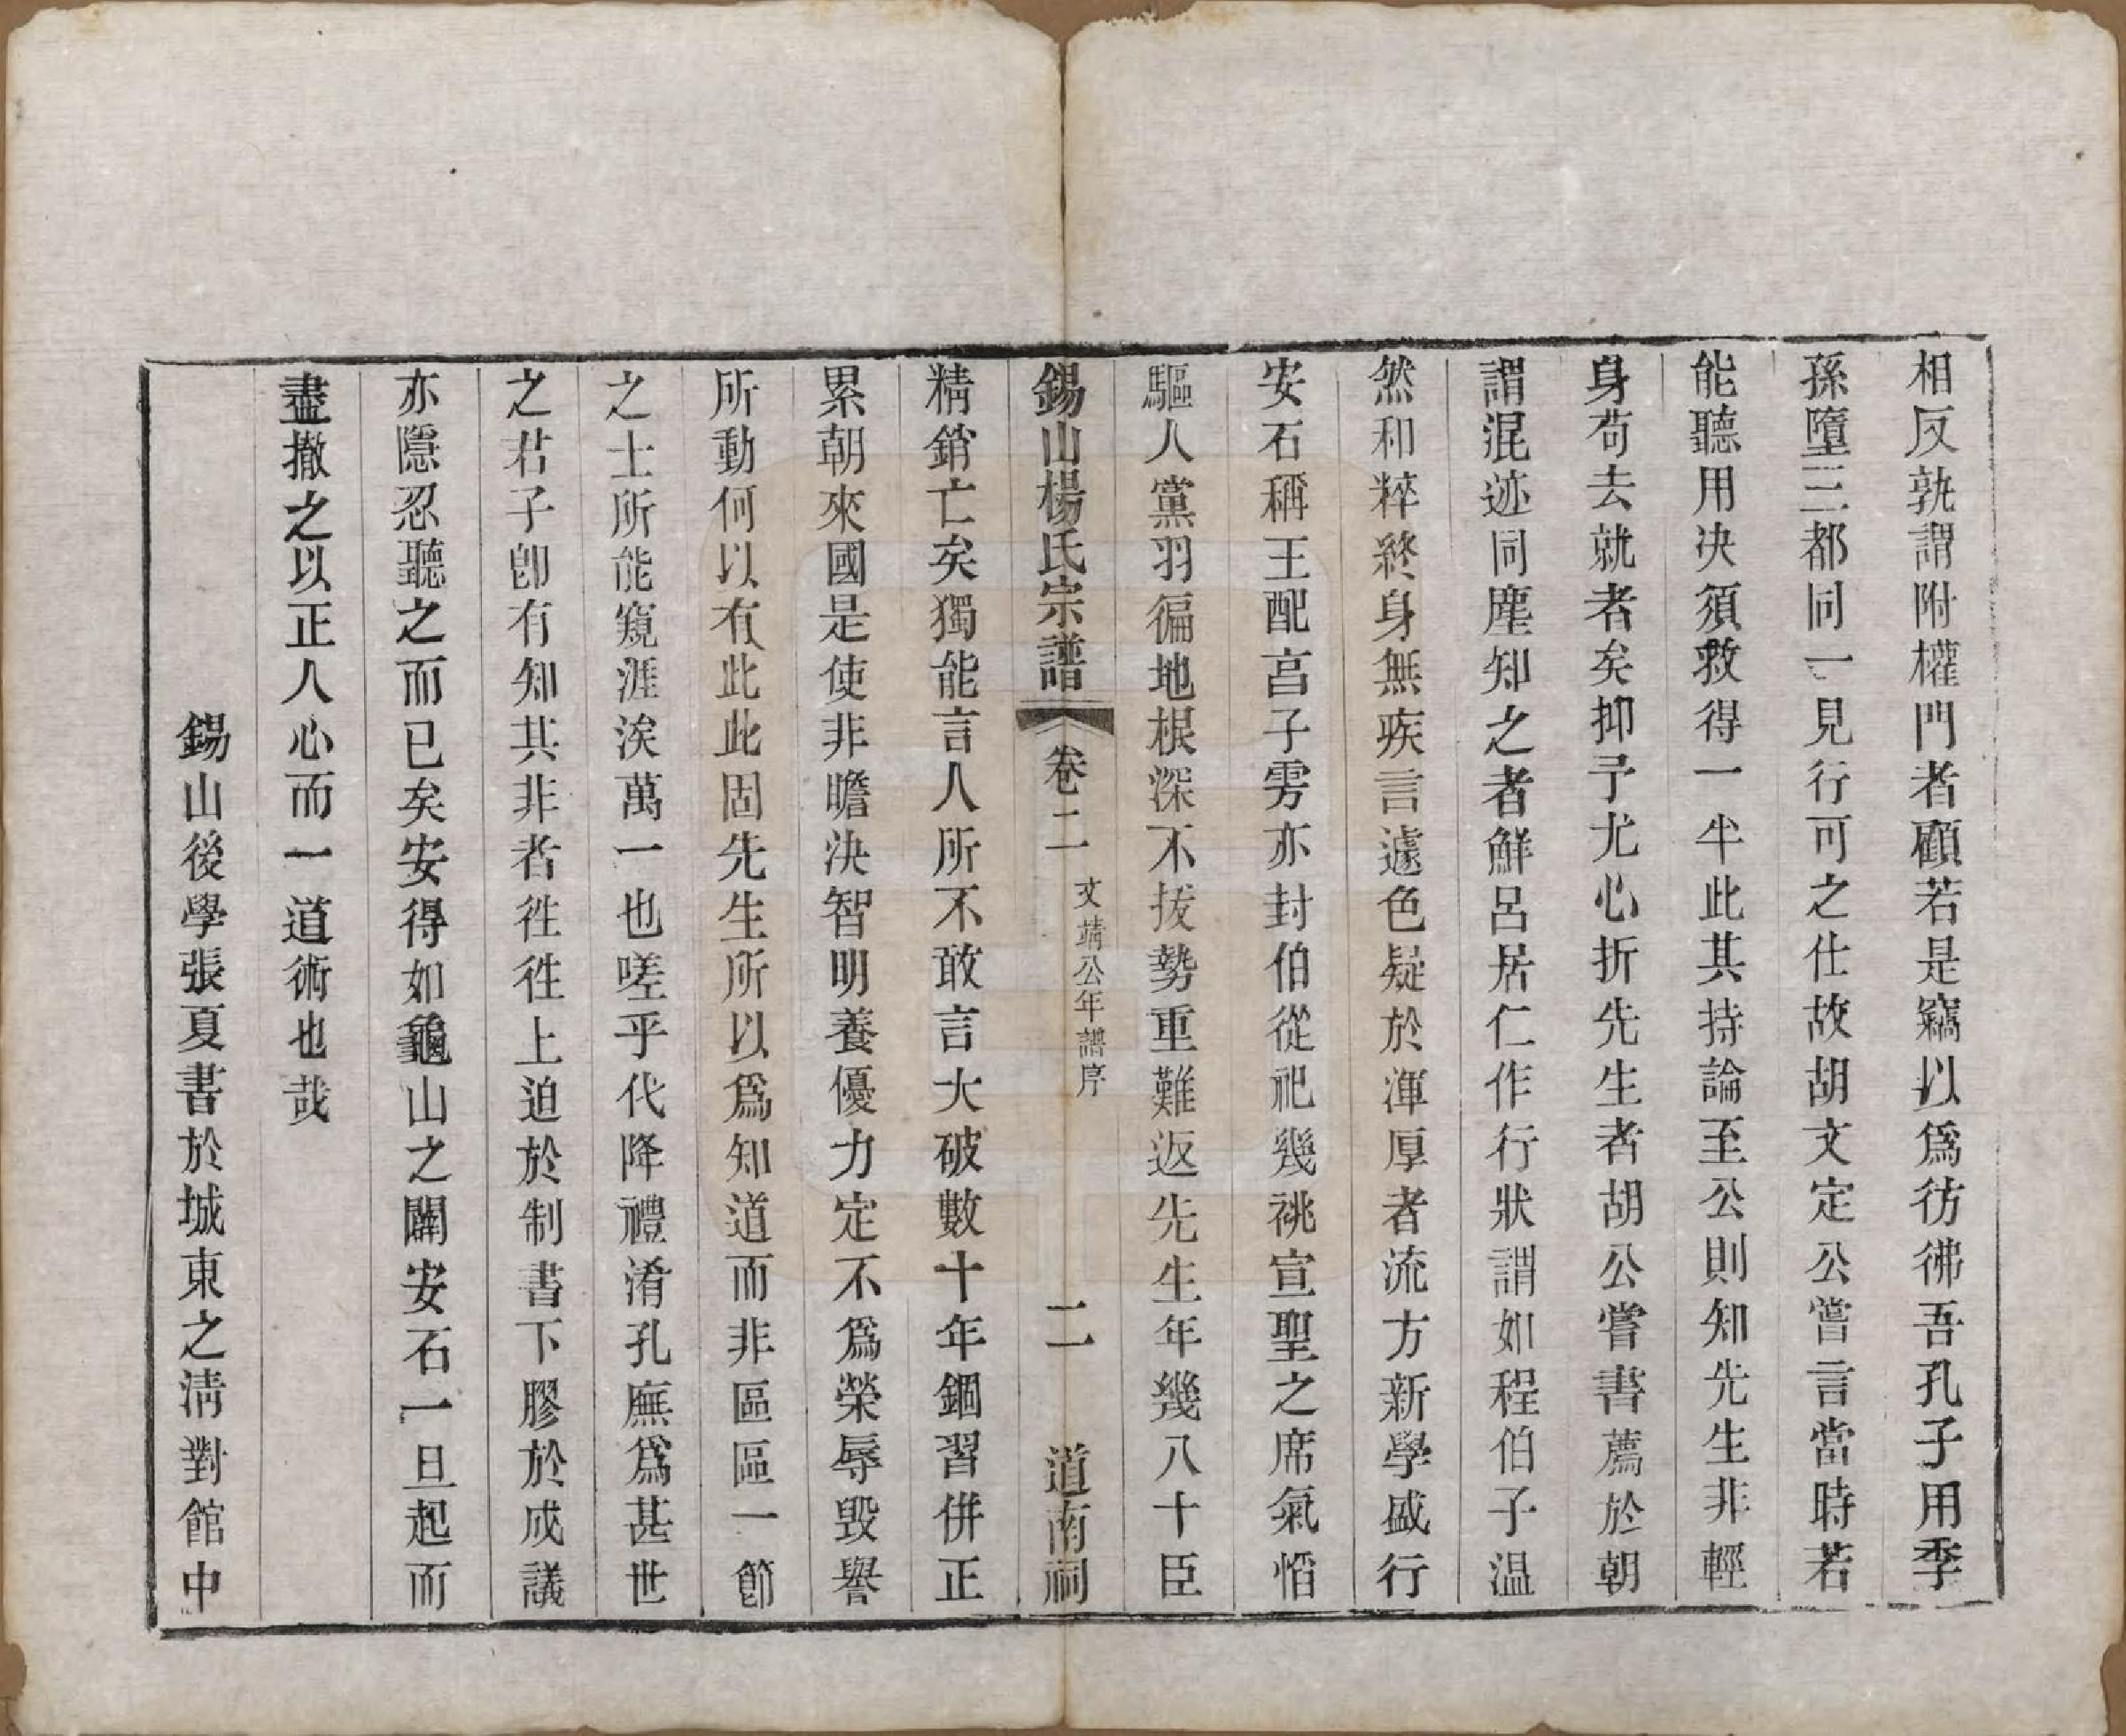 相反孰謂附權門者顧若是竊以爲彷彿吾孔子用季
孫墮三都同一見行可之仕故胡文定公嘗言當時若
能聽用決須救得一半此其持論至公則知先生非輕
身苟去就者矣抑予尤心折先生者胡公嘗書薦於朝
謂混迹同塵知之者鮮呂居仁作行狀謂如程伯子温
然和粹終身無疾言遽色疑於渾厚者流方新學盛行
安石稱王配宫子雱亦封伯從祀幾祧宣聖之席氣熖
驅人黨羽徧地根深不拔勢重難返先生年幾八十臣
錫山楊氏宗譜 卷二 文靖公年譜序 二 道南祠
精銷亡矣獨能言人所不敢言大破數十年錮習併正
累朝來國是使非瞻決智明養優力定不爲榮辱毀譽
所動何以有此此固先生所以爲知道而非區區一節
之士所能窺涯涘萬一也嗟乎代降禮淆孔廡爲甚世
之君子卽有知其非者徃徃上迫於制書下膠於成議
亦隱忍聽之而已矣安得如龜山之闢安石一旦起而
盡撤之以正人心而一道術也哉
錫山後學張夏書於城東之淸對館中